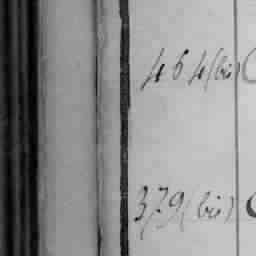 464(bis)
379(bis)